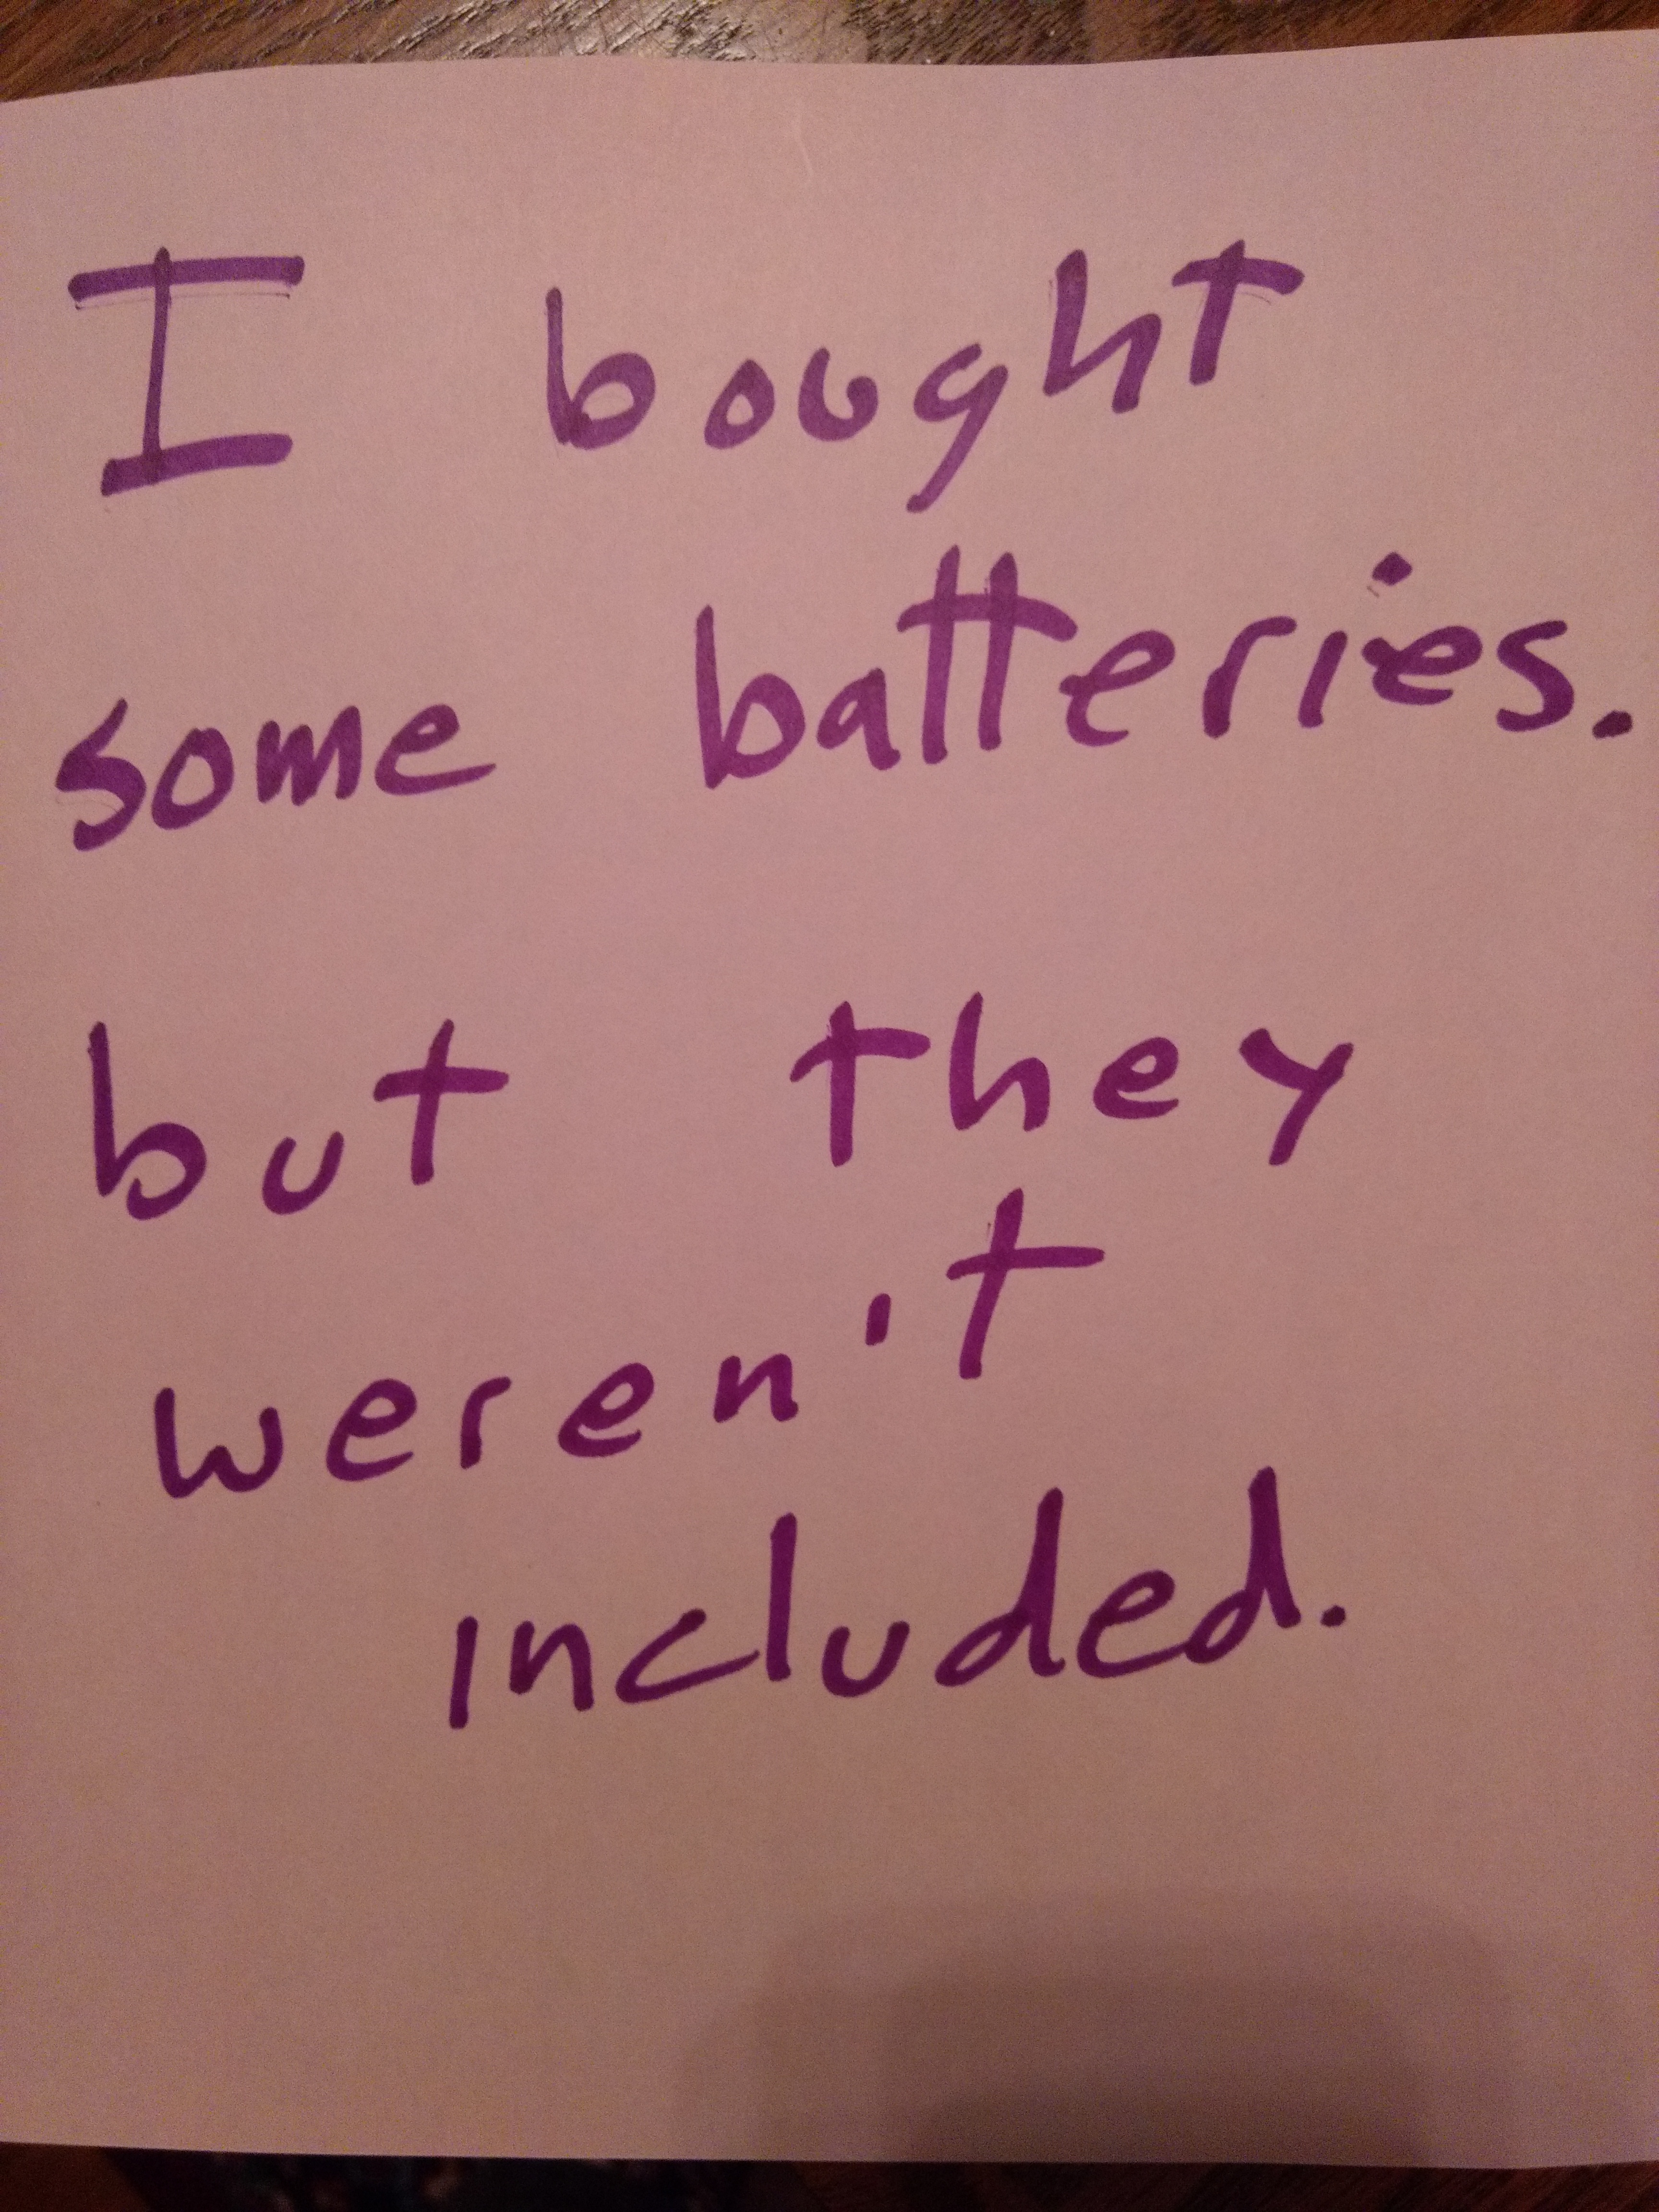 I bought
some batteries.
but they
weren't
included.